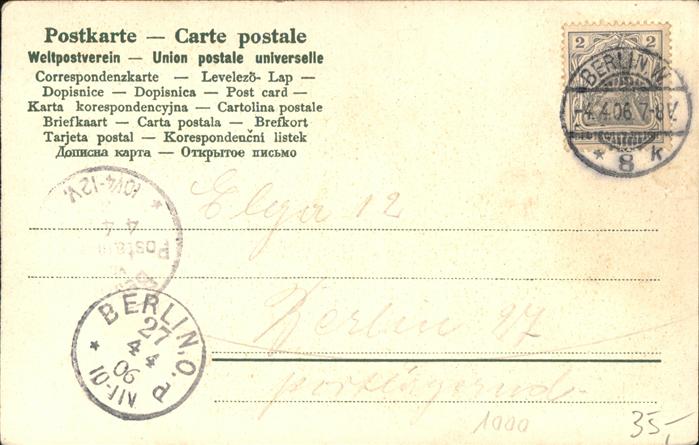 Postkarte — Carte postale
Weltpostverein — Union postale universelle
Correspondenzkarte — Levelező- Lap —
Dopisnice — Dopisnica — Post card —
Karta korespondencyjna — Cartolina postale
Briefkaart — Carta postala — Brefkort
Tarjeta postal — Korespondenční listek
Дописна карта — Открытое письмо
2 2
BERLIN. W.
-4.4.06.7-8V.
* 8 k
* 10¼-12V.
4 4
Posta
Elga 12
BERLIN, O.
27
4 4
06
*
Berlin 27
postlagernd
1000
35,-